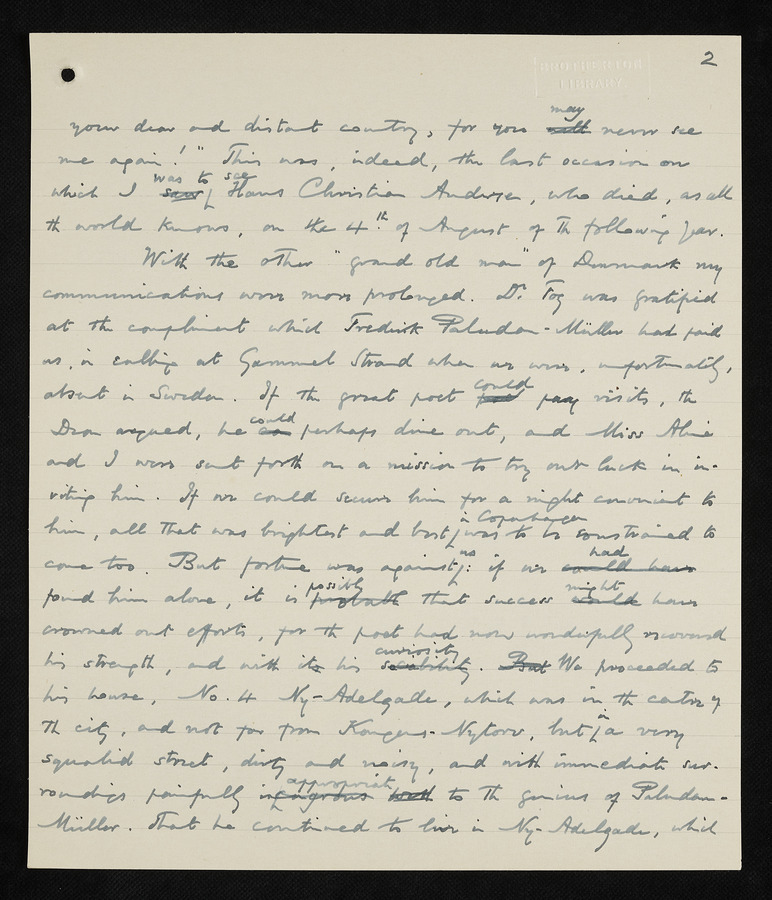 2
BROTHERTON
LIBRARY
may
your dear and distant country, for you will never see
me again!" This was, indeed, the last occasion on
was to see
which I saw Hans Christian Andersen, who died, as all
th world knows, on the 4th of August of th following year.
With the other "grand old man" of Denmark my
communications were more prolonged. Dr. Fog was gratified
at th compliment which Frederik Paludan-Müller had paid
us, in calling at Gammel Strand when we were, unfortunately,
absent in Sweden. If th great poet could pay visits, th
Dean argued, he could can perhaps dine out, and Miss Aline
and I were sent forth on a mission to try our luck in in-
viting him. If we could secure him for a night convenient to
in Copenhagen
him, all that was brightest and best was to be constrained to
us had
come too. But fortune was against: if we could have
possibly might
found him alone, it is probable that success would have
crowned our efforts, for th poet had now wonderfully recovered
curiosity
his strength, and with its his sociability. But We proceeded to
his house, No. 4 Ny-Adelgade, which was in th centre of
in
th city, and not far from Kongens-Nytorv, but a very
squalid street, dirty and noisy, and with immediate sur-
appropriate
roundings painfully incongruous with to th genius of Paludan-
Müller. That he continued to live in Ny-Adelgade, which